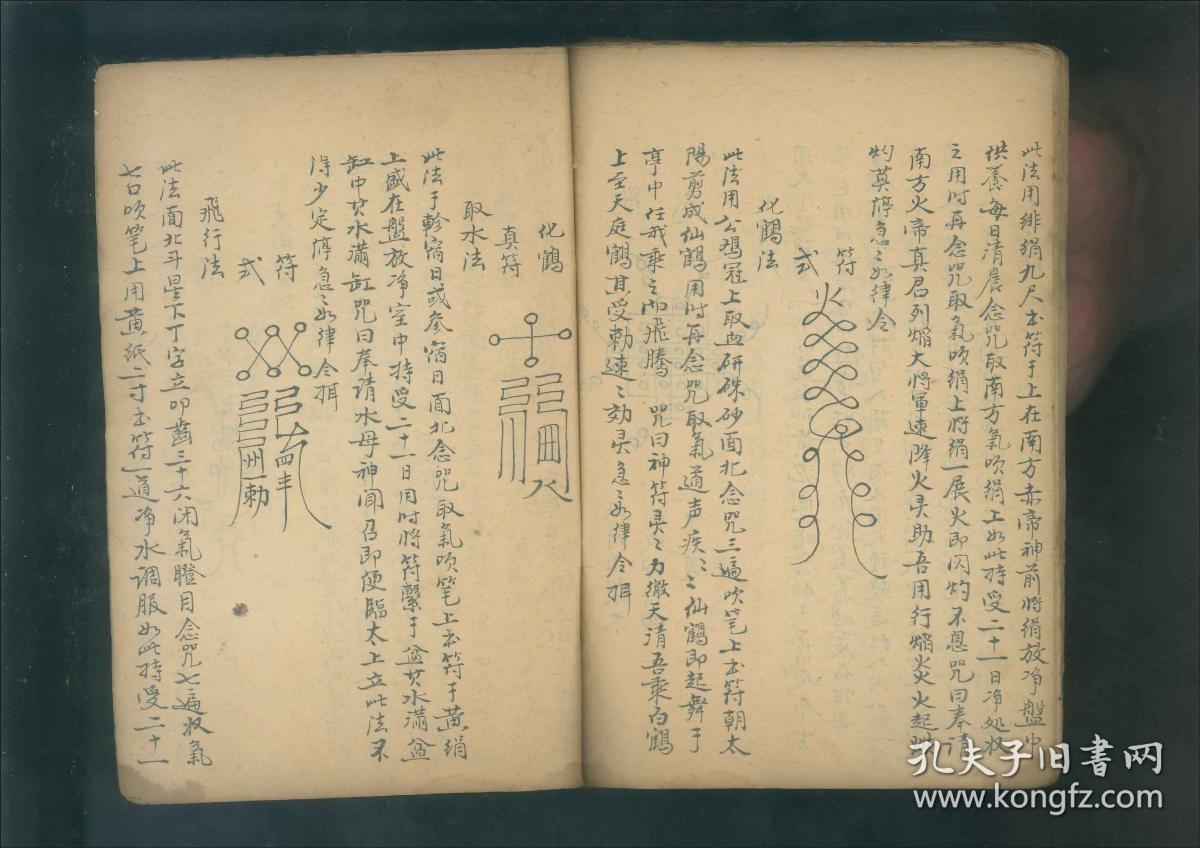 此法用绯绢九尺书符于上在南方赤帝神前将绢放净盤中
供養每日清晨念咒取南方氣吹绢上如此持受二十一日净处收
之用时再念咒取氣吹绢上将绢一展火即闪灼不息咒曰奉请
南方火帝真君列焰大将軍速降火灵助吾用行焰炎火起
灼莫停急〻如律令
符
式
化鶴法
此法用公鸡冠上取血研硃砂面北念咒三遍吹笔上书符朝太
陽剪成仙鶴用时再念咒取氣道声疾〻仙鶴即起舞于
亭中任我乘之而飛騰 咒曰神符灵〻力徹天清吾乘白鶴
上至天庭鶴其受勅速〻効灵急〻如律令拜
化鶴
真符
取水法
此法于軫宿日或参宿日面北念咒取氣吹笔上书符于黄绢
上盛在盤放净室中持受二十一日用时将符繫于盆其水滿盆
缸中其水滿缸咒曰奉请水母神闻召即便臨太上立此法不
得少定停急〻如律令拜
符
式
四
州
勅
飛行法
此法面北斗星下丁字立叩齒三十六闭氣瞪目念咒七遍收氣
七口吹笔上用黄紙二寸书符一道净水调服如此持受二十一
孔夫子旧书网
www.kongfz.com